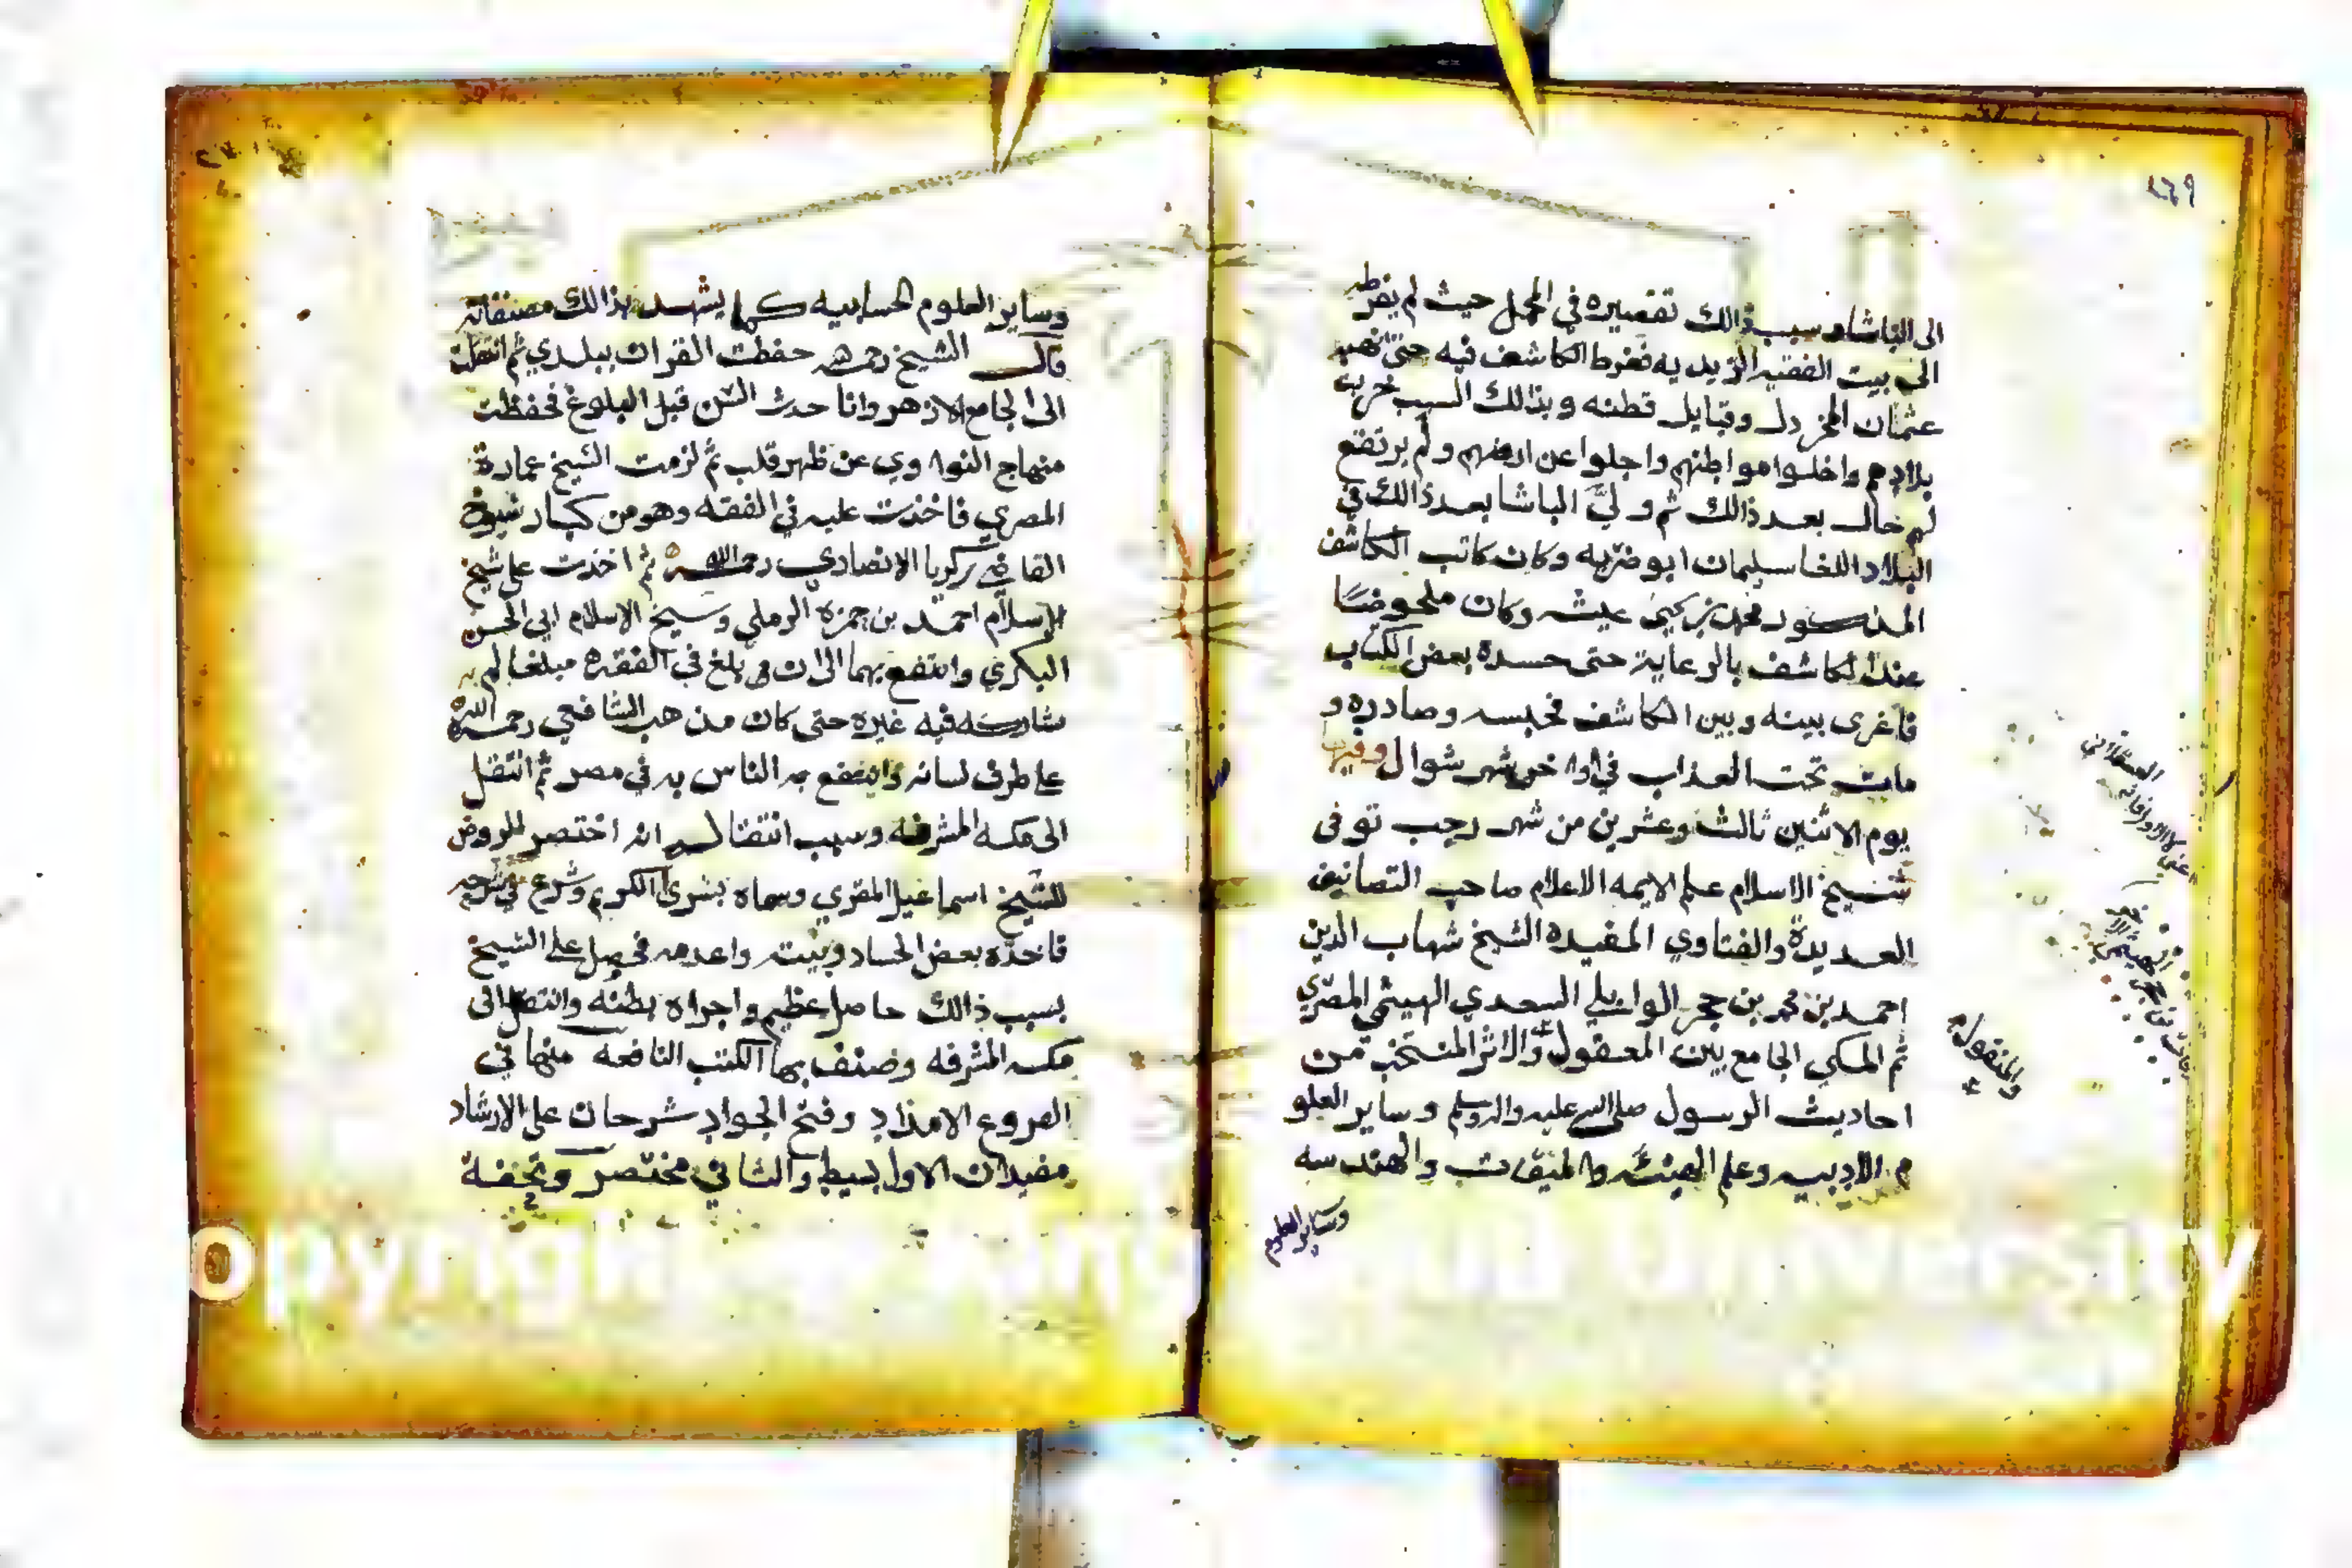 ٢٦٩
الى الباشا وسبب ذالك تقصيره في المحمل حيث لم يفرط
الى بيت الفقيه الزيديه ففرط الكاشف فيه حتى نهبه
عثمان المخردل وقبايل قطنه وبذالك السبب خربت
بلادهم واخلوا مواطنهم واجلوا عن ارضهم ولم يرتفع
لهم حال بعد ذالك ثم ولي الباشا بعد ذالك في
البلاد اللغا سليمان ابو ضربه وكان كاتب الكاشف
المذكور محمد بن يحيى عيشه وكان ملحوضا
عند الكاشف بالرعاية حتى حسده بعض الكتاب
فاغرى بينه وبين الكاشف فحبسه وصادره و
مات تحت العذاب في اواخر شهر شوال وفيها
يوم الاثنين ثالث وعشرين من شهر رجب توفى
شيخ الاسلام علم الايمه الاعلام صاحب التصانيف
العديدة والفتاوي المفيده الشيخ شهاب الدين
احمد بن محمد بن حجر الوايلي السعدي الهيثمي المصري
ثم المكي الجامع بين المعقول والاثر المنتخب من
والمنقول
احاديث الرسول صلى الله عليه واله وسلم وساير العلو
م الادبيه وعلم الهيئه والميقات والهندسه
وساير العلوم
وساير العلوم الحسابيه كما يشهد بذالك مصنفاته
قال الشيخ رحمه حفظت القران ببلدي ثم انتقلت
الى الجامع الازهر وانا حدث السن قبل البلوغ فحفظت
منهاج النواوي عن ظهر قلب ثم لزمت الشيخ عمارة
المصري فاخذت عليه في الفقه وهو من كبار شيوخ
القاضي زكريا الانصادي رحمه الله ثم اخذت على شيخ
الاسلام احمد بن حمزه الرملي وشيخ الاسلام ابي الحسن
البكري وانتفع بهما الى ان بلغ في الفقه مبلغا لم
يشاركه فيه غيره حتى كان مذهب الشافعي رحمه الله
على طرف لسانه وانتفع به الناس به في مصر ثم انتقل
الى مكه المشرفه وسبب انتقاله انه اختصر للروض
للشيخ اسماعيل المقري وسماه بشرى الكريم وشرع في شرحه
فاخذه بعض الحساد وبيته واعدمه فحصل على الشيخ
بسبب ذالك حاصل عظيم واجراه بطنه وانتقل الى
مكه المشرفه وصنف بها الكتب النافعه منها في
الفروع الامداد وفتح الجواد شرحان على الارشاد
مفيدان الاول بسيط والثاني مختصر وتحفة